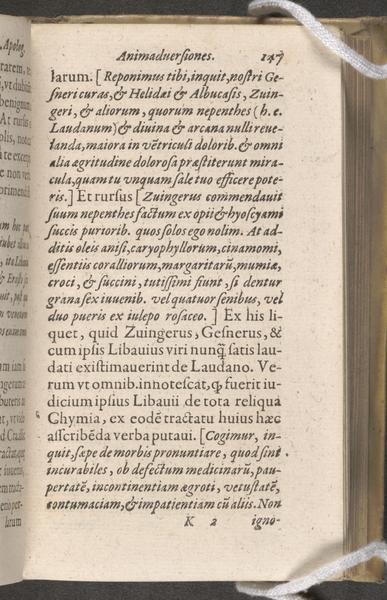 Animaduersiones. 147
larum. [Reponimus tibi, inquit, nostri Ge-
sneri curas, & Helidæi & Albucasis, Zuin-
geri, & aliorum, quorum nepenthes (h. e.
Laudanum) & diuina & arcana nulli reue-
landa, maiora in vẽtriculi dolorib. & omni
alia ægritudine dolorosa præstiterunt mira-
cula, quam tu vnquam sale tuo efficere pote-
ris.] Et rursus [Zuingerus commendauit
suum nepenthes factum ex opii & hyoscyami
succis puriorib. quos solos ego nolim. At ad-
ditis oleis anisi, caryophyllorum, cinamomi,
essentiis coralliorum, margaritarũ, mumiæ,
croci, & succini, tutissimi fiunt, si dentur
grana sex iuuenib. vel quatuor senibus, vel
duo pueris ex iulepo rosaceo.] Ex his li-
quet, quid Zuingerus, Gesnerus, &
cum ipsis Libauius viri nunq̃ satis lau-
dati existimauerint de Laudano. Ve-
rum vt omnib. innotescat, q̃ fuerit iu-
dicium ipsius Libauii de tota reliqua
Chymia, ex eodẽ tractatu huius hæc
asscribẽda verba putaui. [Cogimur, in-
quit, sæpe de morbis pronuntiare, quod sint
incurabiles, ob defectum medicinarũ, pau-
pertatẽ, incontinentiam ægroti, vetustatẽ,
contumaciam, & impatientiam cũ aliis. Non
K 2 igno-